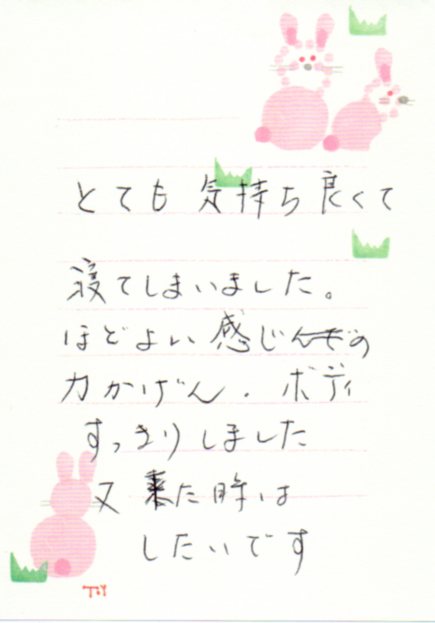 とても気持ち良くて
寝てしまいました。
ほどよい感じの
力かげん．ボディ
すっきりしました
又来た時は
したいです